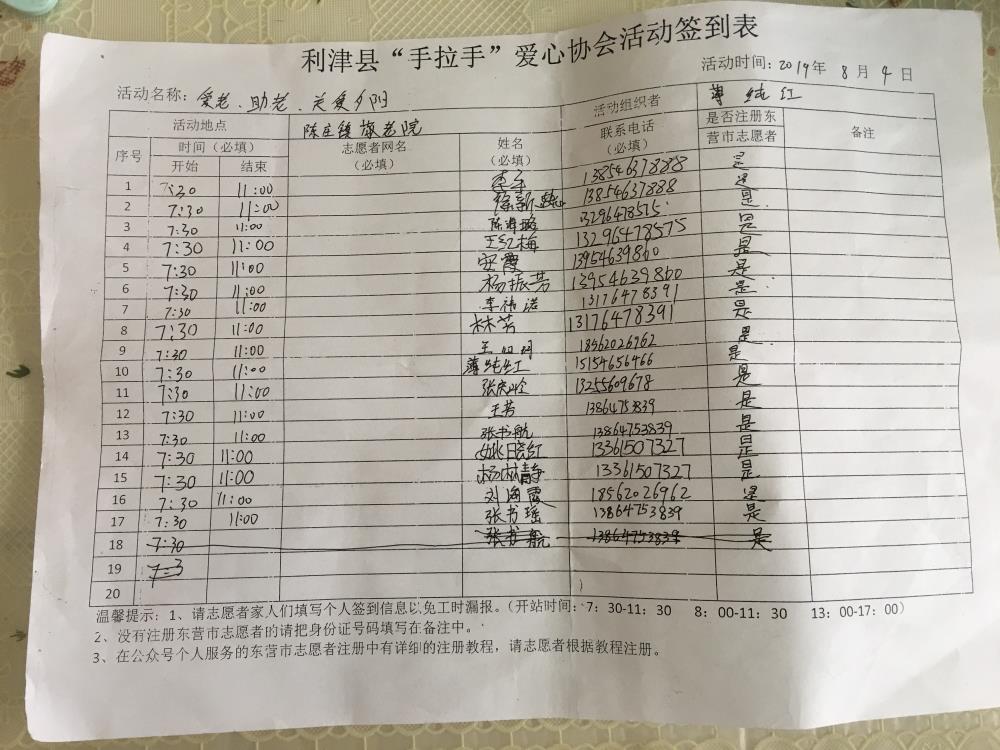 利津县“手拉手”爱心协会活动签到表
活动时间：2019年 8月 4日
活动名称： 爱老、助老、关爱夕阳 活动组织者 薄纯红
活动地点 陈庄镇敬老院 联系电话（必填） 是否注册东营市志愿者 备注
序号 时间（必填） 志愿者网名（必填） 姓名（必填）
开始 结束
1 7:30 11:00 李军 13854637888 是
2 7:30 11:00 徐新 13854637888 是
3 7:30 11:00 陈 13296478575 是
4 7:30 11:00 王红梅 13296478575 是
5 7:30 11:00 安霞 13954639860 是
6 7:30 11:00 杨振芳 13954639860 是
7 7:30 11:00 李祎诺 13176478391 是
8 7:30 11:00 林芳 13176478391 是
9 7:30 11:00 王 18562026962 是
10 7:30 11:00 薄纯红 15154656466 是
11 7:30 11:00 张庆 13255609678 是
12 7:30 11:00 王芳 13864753839 是
13 7:30 11:00 张书航 13864753839 是
14 7:30 11:00 姚晓红 13361507327 是
15 7:30 11:00 杨林静 13361507327 是
16 7:30 11:00 刘海霞 18562026962 是
17 7:30 11:00 张书瑶 13864753839 是
18 7:30 张书航 13864753839 是
19 7:3
20
温馨提示：1、请志愿者家人们填写个人签到信息以免工时漏报。（开站时间：7：30-11：30 8：00-11：30 13：00-17：00）
2、没有注册东营市志愿者的请把身份证号码填写在备注中。
3、在公众号个人服务的东营市志愿者注册中有详细的注册教程，请志愿者根据教程注册。